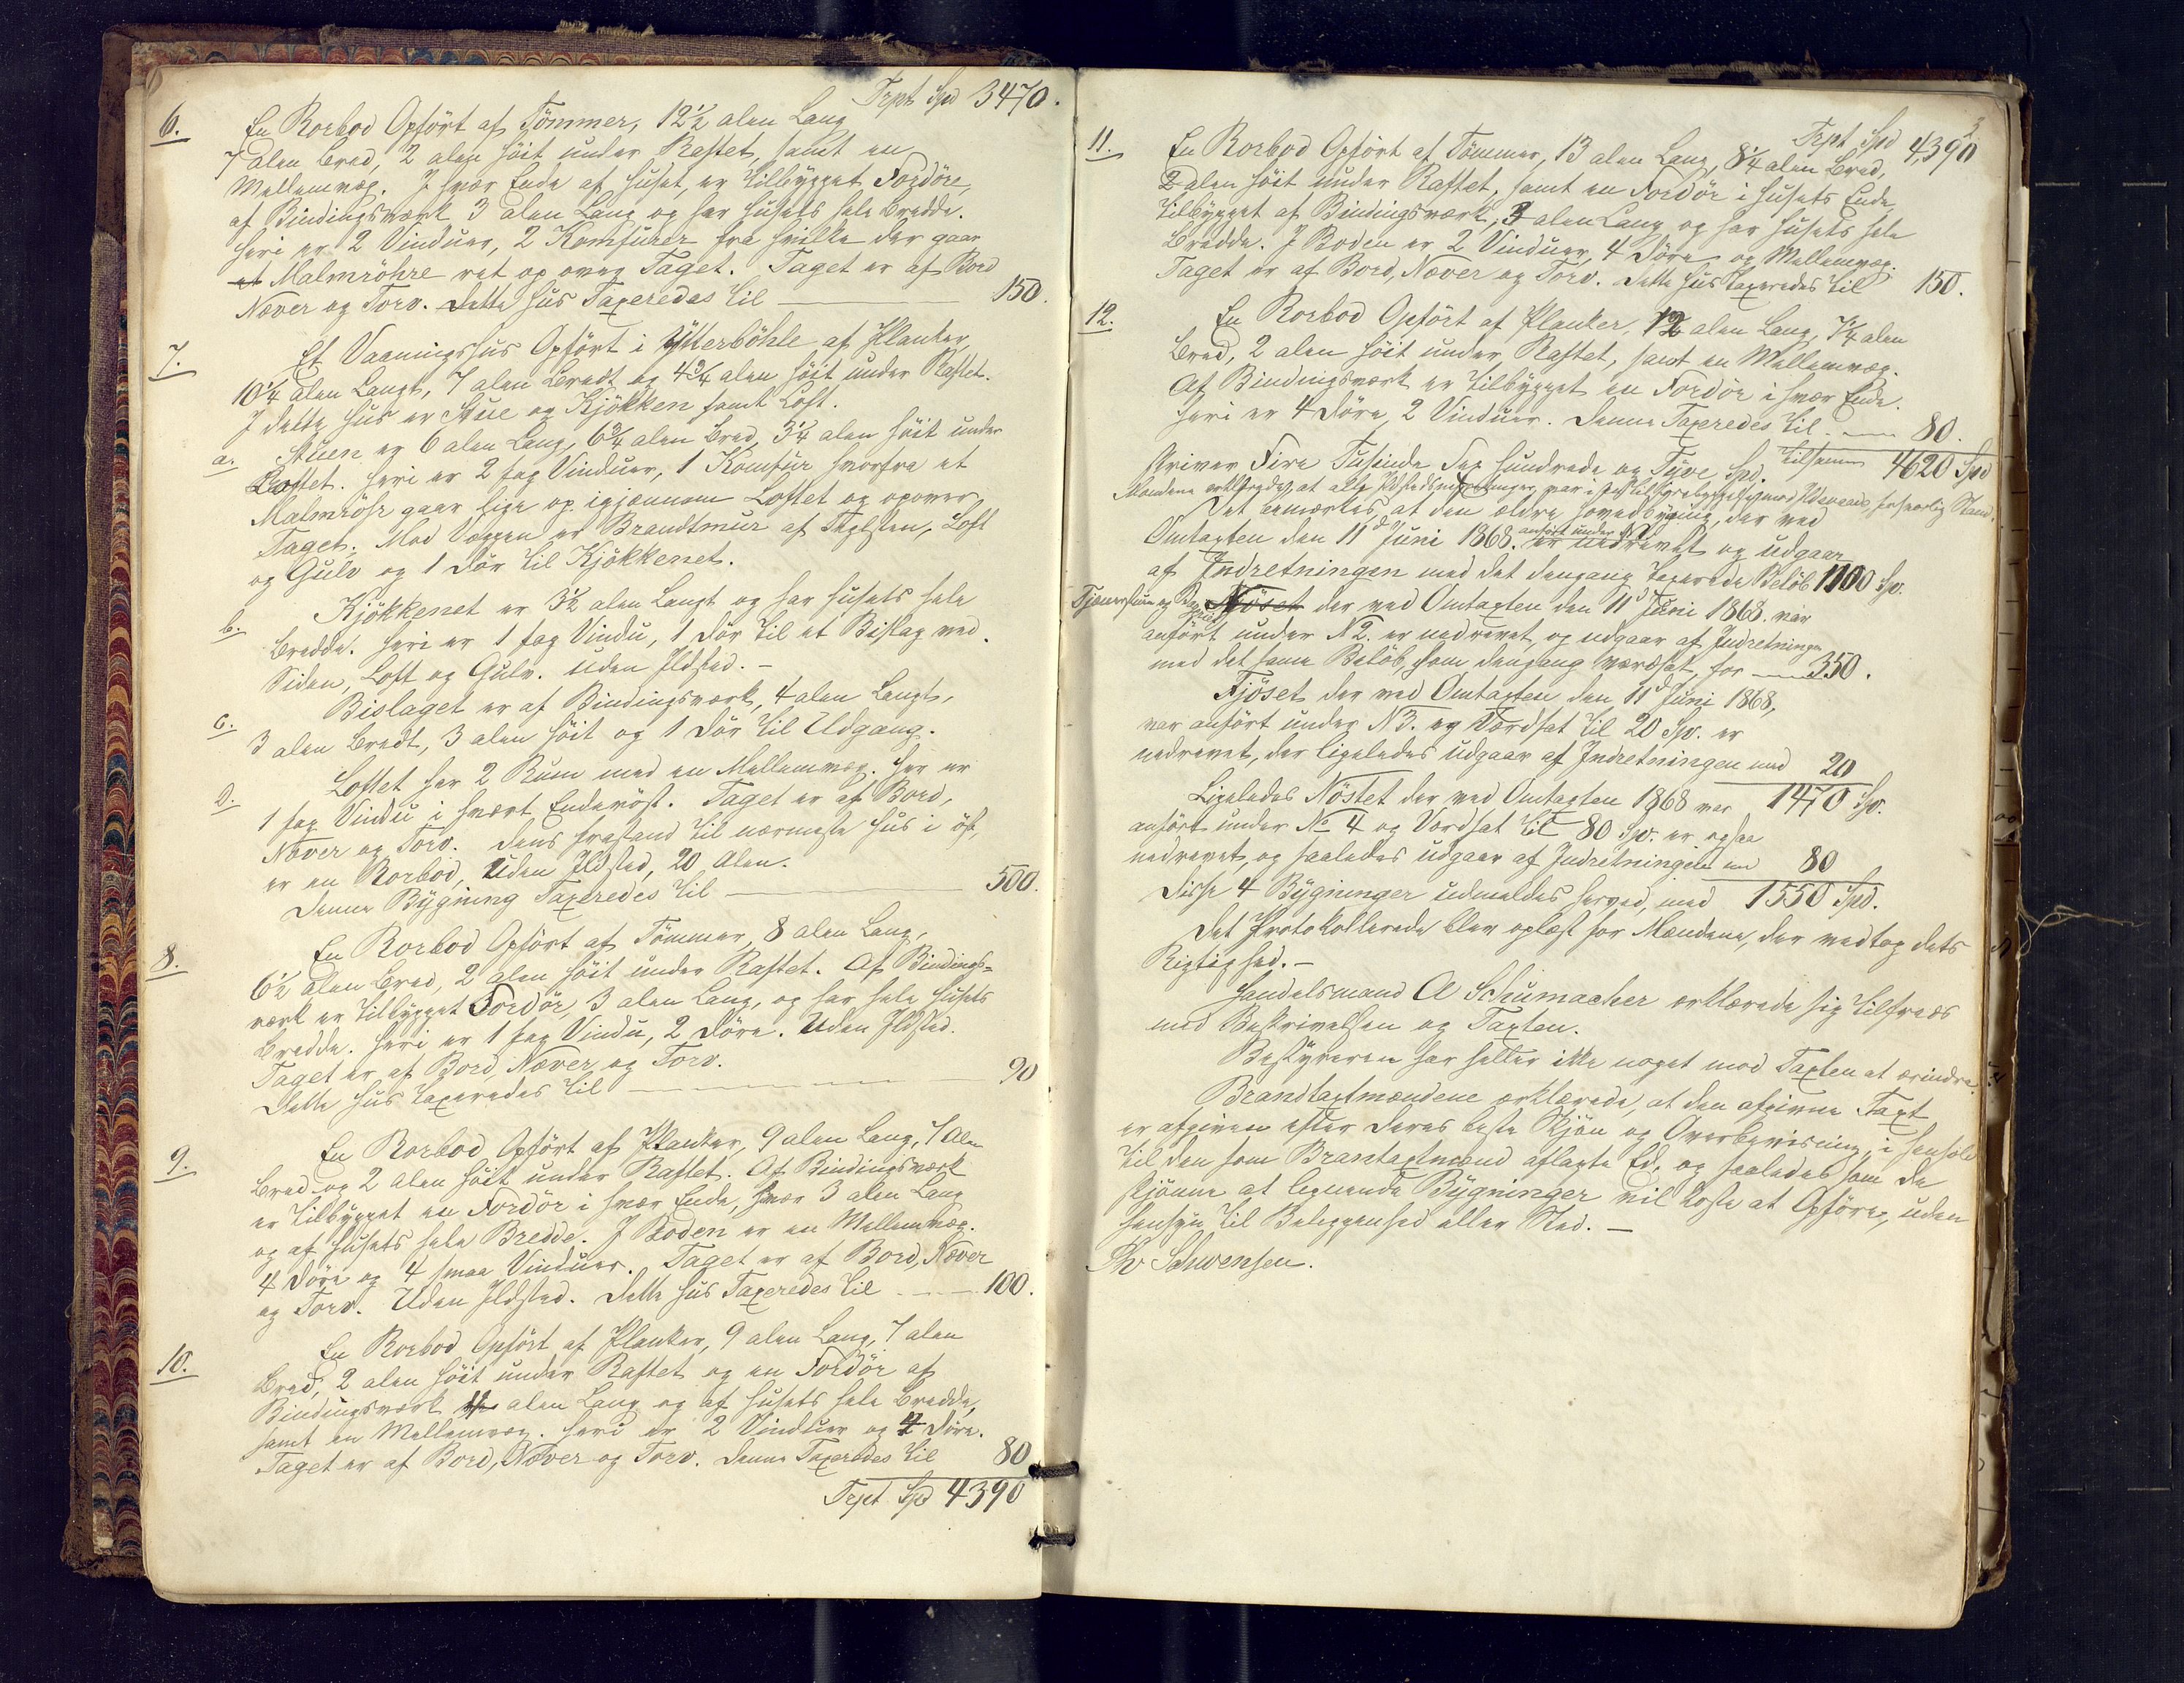 Trpt Spd 3470.
6. En Rorbod Opført af Tømmer, 12½ alen Lang
7 alen bred, 2 alen høit under Raftet, samt en
Mellemvæg. I hvær Ende af huset, er tilbygget Fordöre,
af Bindingsværk 3 alen Lang og har husets hele bredde.
heri er 2 Vinduer, 2 Komfurer fra hvilke der gaar
et Malmröhre ret op over Taget. Taget er af Bord
Næver og Torv. Dette hus Taxeredes til 150.
7. Et Vaaningshus Opført i Ytterböhle af Planker,
10¼ alen Langt, 7 alen bredt og 4¾ alen høit under Raftet.
I dette hus er Stue og Kjøkken samt Loft.
a. Stuen er 6 alen Lang, 6¾ alen bred, 3¼ alen høit under
Loftet. heri er 2 fag Vinduer, 1 Komfur hvorfra et
Malmrör gaar lige op igjennem Loftet og opover
Taget. Mod Væggen er Brandtmur af Teglsten, Loft
og Gulv og 1 Dör til Kjøkkenet.
b. Kjøkkenet er 3½ alen Langt og har husets hele
bredde. heri er 1 fag Vindu, 1 Dör til et Bislag ved
Siden, Loft og Gulv. uden Ildsted. –
c. Bislaget er af Bindingsværk, 4 alen Langt,
3 alen bredt, 3 alen høit og 1 Dör til Udgang.
d. Loftet har 2 Rum med en Mellemvæg. her er
1 fag Vindu i hvært Enderöst. Taget er af Bord,
Næver og Torv. Dens frastand til nærmeste hus i öst,
er en Rorbod, uden Ildsted, 20 Alen.
Denne Bygning Taxeredes til 500.
8. En Rorbod Opført af Tømmer, 8 alen Lang,
6½ alen bred, 2 alen høit under Raftet. Af Bindings=
værk er tilbygget Fordör, 3 alen Lang, og har hele husets
bredde. heri er 1 fag Vindu, 2 Döre. Uden Ildsted.
Taget er af Bord, Næver og Torv.
Dette hus taxeredes til 90
9. En Rorbod Opført af Planker, 9 alen Lang, 7 Alen
bred og 2 alen høit under Raftet. Af Bindingsværk
er tilbygget en Fordör i hvær Ende, hvær 3 alen Lang
og af husets hele Bredde. I Boden er en Mellemvæg.
4 Döre og 4 smaa Vinduer. Taget er af Bord, Næver
og Torv. Uden Ildsted. Dette hus Taxeredes til 100.
10. En Rorbod Opført af Planker, 9 alen Lang, 7 alen
bred, 2 alen høit under Raftet og en Fordör af
Bindingsværk alen Lang og af husets hele bredde,
samt en Mellemvæg. heri er 2 Vinduer og 4 Döre.
Taget er af Bord, Næver og Torv. Denne Taxeredes til 80
Trpt Spd 4390
3
Trpt Spd 4,390
11. En Rorbod Opført af Tømmer, 13 alen Lang, 8¼ alen bred,
2 alen høit under Raftet, samt en Fordör i husets Ende,
tilbygget af Bindingsværk, 3 alen Lang og har husets hele
bredde. I Boden er 2 Vinduer, 4 Döre og Mellemvæg.
Taget er af Bord, Næver og Torv. Dette hus taxeredes til 150.
12. En Rorbod Opført af Planker, 12 alen Lang, 7¼ alen
bred, 2 alen høit under Raftet, samt en Mellemvæg.
Af Bindingsværk er tilbygget en Fordör i hvær Ende.
heri er 4 Döre, 2 Vinduer. Denne Taxeredes til 80.
skriver Fire Tusinde Sex hundrede og Tyve Spd. tilsammen 4620 Spd
Mændene erklærede, at alle Ildstedsindretninger var i forsvarlig Stand.
Det bemærkes, at den ældre hovedbygning, der ved
Omtaxten den 11te Juni 1868. anført under No 1 er nedrevet og udgaar
af Indretningen med det dengang taxerede Beløb 1100 Sp.
Tjenerstuen og Nöset der ved Omtaxten den 11te Juni 1868. var
anført under N 2. er nedrevet, og udgaar af Indretningen
med det samme Beløb, som dengang værdsat, for 350.
Fjöset der ved Omtaxten den 11te Juni 1868,
var anført under N 3. og Værdsat til 20 Sp. er
nedrevet, der ligeledes udgaar af Indretningen med 20
1470 Sp.
Ligeledes Nöstet der ved Omtaxten 1868 var
anført under No 4 og Værdsat til 80 Sp. er ogsaa
nedrevet, og saaledes udgaar af Indretningen med 80
Disse 4 Bygninger udmeldes herved, med 1550 Spd.
Det Protokollerede blev oplæst for Mændene, der vedtog dets
Rigtighed. –
Handelsmand A Schumacher erklærede sig tilfreds
med Beskrivelsen og Taxten.
Bestyreren har heller ikke noget mod Taxten at erindre.
Brandtaxtmændene erklærede, at den afgivne Taxt
er afgiven efter deres beste Skjön og Overbevisning, i henhold
til den som Brantaxtmænd aflagte Ed, og saaledes som de
skjönne at lignende Bygninger vil koste at Opføre, uden
hensyn til Beliggenhed eller Sted. –
Chr Schwensen.